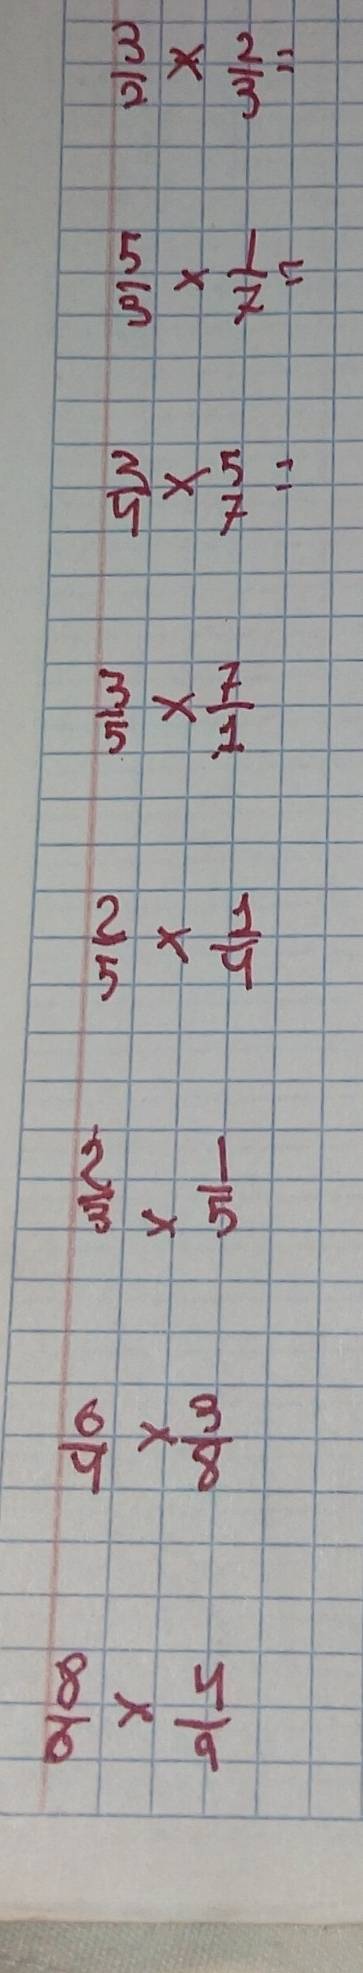 3/2 × 2/3 =
5/3 × 1/7 =
2/5 × 5/7 =
3/5 × 7/2
2/5 × 2/4
2/3 × 1/5
6/4 × 3/8
8/6 × 4/9